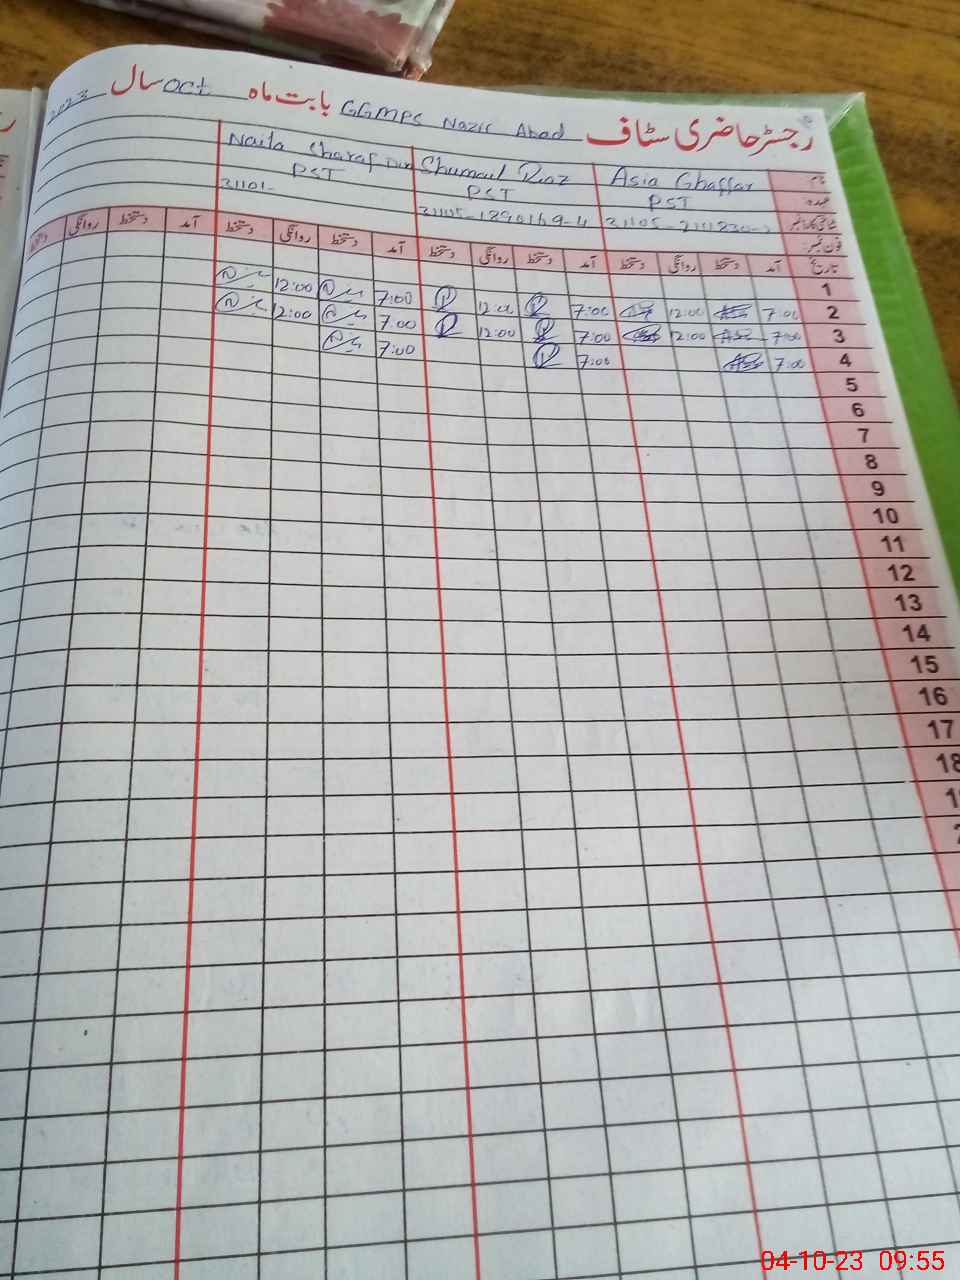 رجسٹر حاضری سٹاف GGMPS Nazir Abad بابت ماہ Oct سال 2023
نام Asia Ghaffar Shumail Riaz Naila Sharaf Din
عہدہ PST PST PST
شناختی کارڈ نمبر 31105-1890169-4 31101-
فون نمبر:
تاریخ آمد دستخط روانگی دستخط آمد دستخط روانگی دستخط آمد دستخط روانگی دستخط آمد دستخط روانگی دستخط
1
2 7:00 12:00 7:00 12:00 7:00 12:00
3 7:00 12:00 7:00 12:00 7:00 12:00
4 7:00 7:00 7:00
5
6
7
8
9
10
11
12
13
14
15
16
17
18
04-10-23 09:55